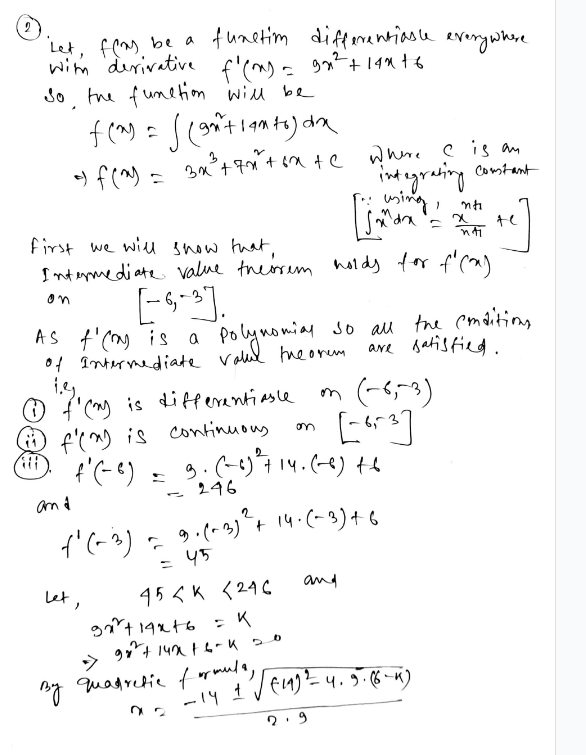 ②
Let, f(x) be a function differentiable everywhere
with derivative f'(x) = 9x² + 14x + 6
So, the function will be
f(x) = ∫(9x² + 14x + 6) dx
⇒ f(x) = 3x³ + 7x² + 6x + c where c is an
integrating constant
[∵ using, ∫xⁿdx = xⁿ⁺¹/n+1 + c]
First we will show that,
Intermediate value theorem holds for f'(x)
on [-6, -3].
As f'(x) is a polynomial so all the conditions
of Intermediate value theorem are satisfied.
i.e,
(i) f'(x) is differentiable on (-6, -3)
(ii) f'(x) is continuous on [-6, -3]
(iii). f'(-6) = 9·(-6)² + 14·(-6) + 6
= 246
and
f'(-3) = 9·(-3)² + 14·(-3) + 6
= 45
Let, 45 < K < 246 and
9x² + 14x + 6 = K
⇒ 9x² + 14x + 6 - K = 0
By quadratic formula,
x = -14 ± √(14)² - 4·9·(6-K)
2·9